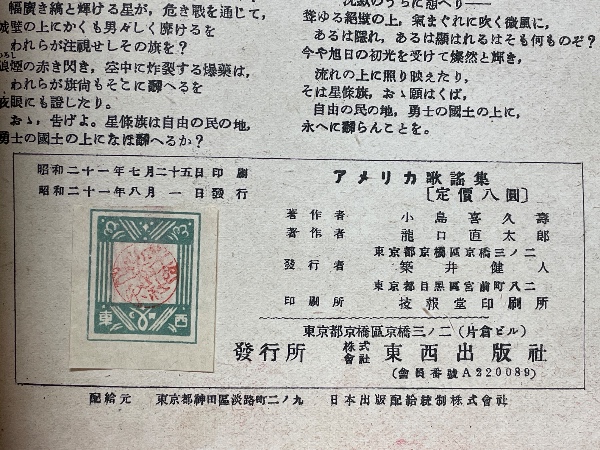 幅廣き縞と輝ける星が、危き戰を通じて、
城壁の上にかくも男々しく靡けるを
われらが注視せしその旗を?
狼煙の赤き閃き、空中に炸裂する爆藥は、
われらが旗尙もそこに飜へるを
夜眼にも證したり。
おゝ、告げよ。星條旗は自由の民の地、
勇士の國土の上になほ飜へるか?
聳ゆる絕壁の上、氣まぐれに吹く微風に、
あるは隱れ、あるは顯はれるはそも何ものぞ?
今や旭日の初光を受けて燦然と輝き、
流れの上に照り映えたり、
そは星條旗、おゝ願はくば、
自由の民の地、勇士の國土の上に、
永へに飜らんことを。
昭和二十一年七月二十五日印刷
昭和二十一年八月一日發行
東西
アメリカ歌謠集
〔定價八圓〕
著作者 小島喜久壽
著作者 龍口直太郎
東京都京橋區京橋三ノ二
發行者 築井健人
東京都目黑區宮前町八二
印刷所 技報堂印刷所
東京都京橋區京橋三ノ二(片倉ビル)
發行所 株式會社 東西出版社
(會員番號A220089)
配給元 東京都神田區淡路町二ノ九 日本出版配給統制株式會社